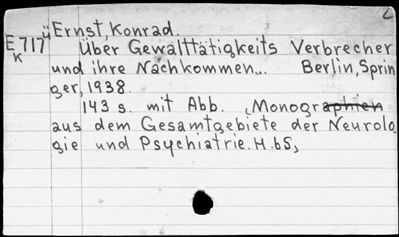 2
Ernst, Konrad.
E717ü
k
Über Gewalttätigkeits Verbrecher
und ihre Nachkommen... Berlin, Sprin
ger, 1938.
143 s. mit Abb. (Monographien
aus dem Gesamtgebiete der Neurolo
gie und Psychiatrie. H.65)